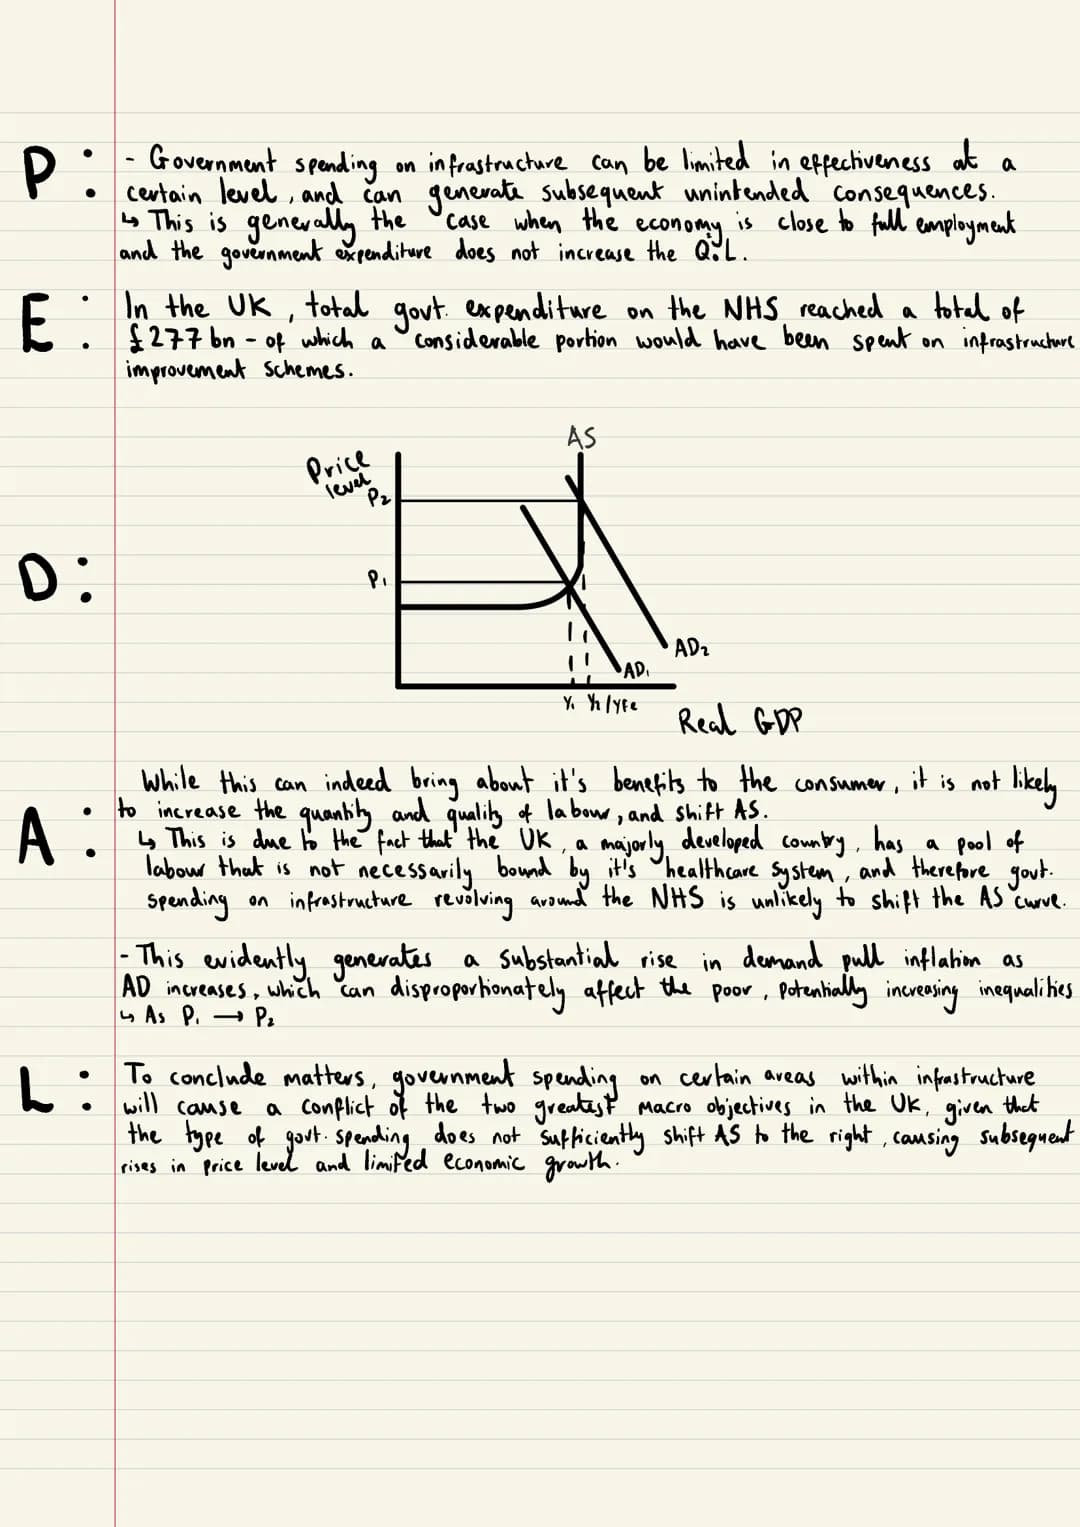 P: - Government spending on infrastructure can be limited in effectiveness at a
certain level, and can generate subsequent unintended consequences.
↳ This is generally the case when the economy is close to full employment
and the government expenditure does not increase the Q.L.
E: In the UK, total govt. expenditure on the NHS reached a total of
£277 bn - of which a considerable portion would have been spent on infrastructure
improvement schemes.
AS
Price
level
P₂
D:
P₁
AD₂
AD₁
Y₁ Y₂/YFe
Real GDP
While this can indeed bring about it's benefits to the consumer, it is not likely
A: to increase the quantity and quality of labour, and shift AS.
↳ This is due to the fact that the UK, a majorly developed country, has a pool of
labour that is not necessarily bound by it's healthcare system, and therefore govt.
spending on infrastructure revolving around the NHS is unlikely to shift the AS curve.
- This evidently generates a substantial rise in demand pull inflation as
AD increases, which can disproportionately affect the poor, potentially increasing inequalities
↳ As P₁ → P₂
L: To conclude matters, government spending on certain areas within infrastructure
will cause a conflict of the two greatest macro objectives in the UK, given that
the type of govt. spending does not sufficiently shift AS to the right, causing subsequent
rises in price level and limited economic growth.